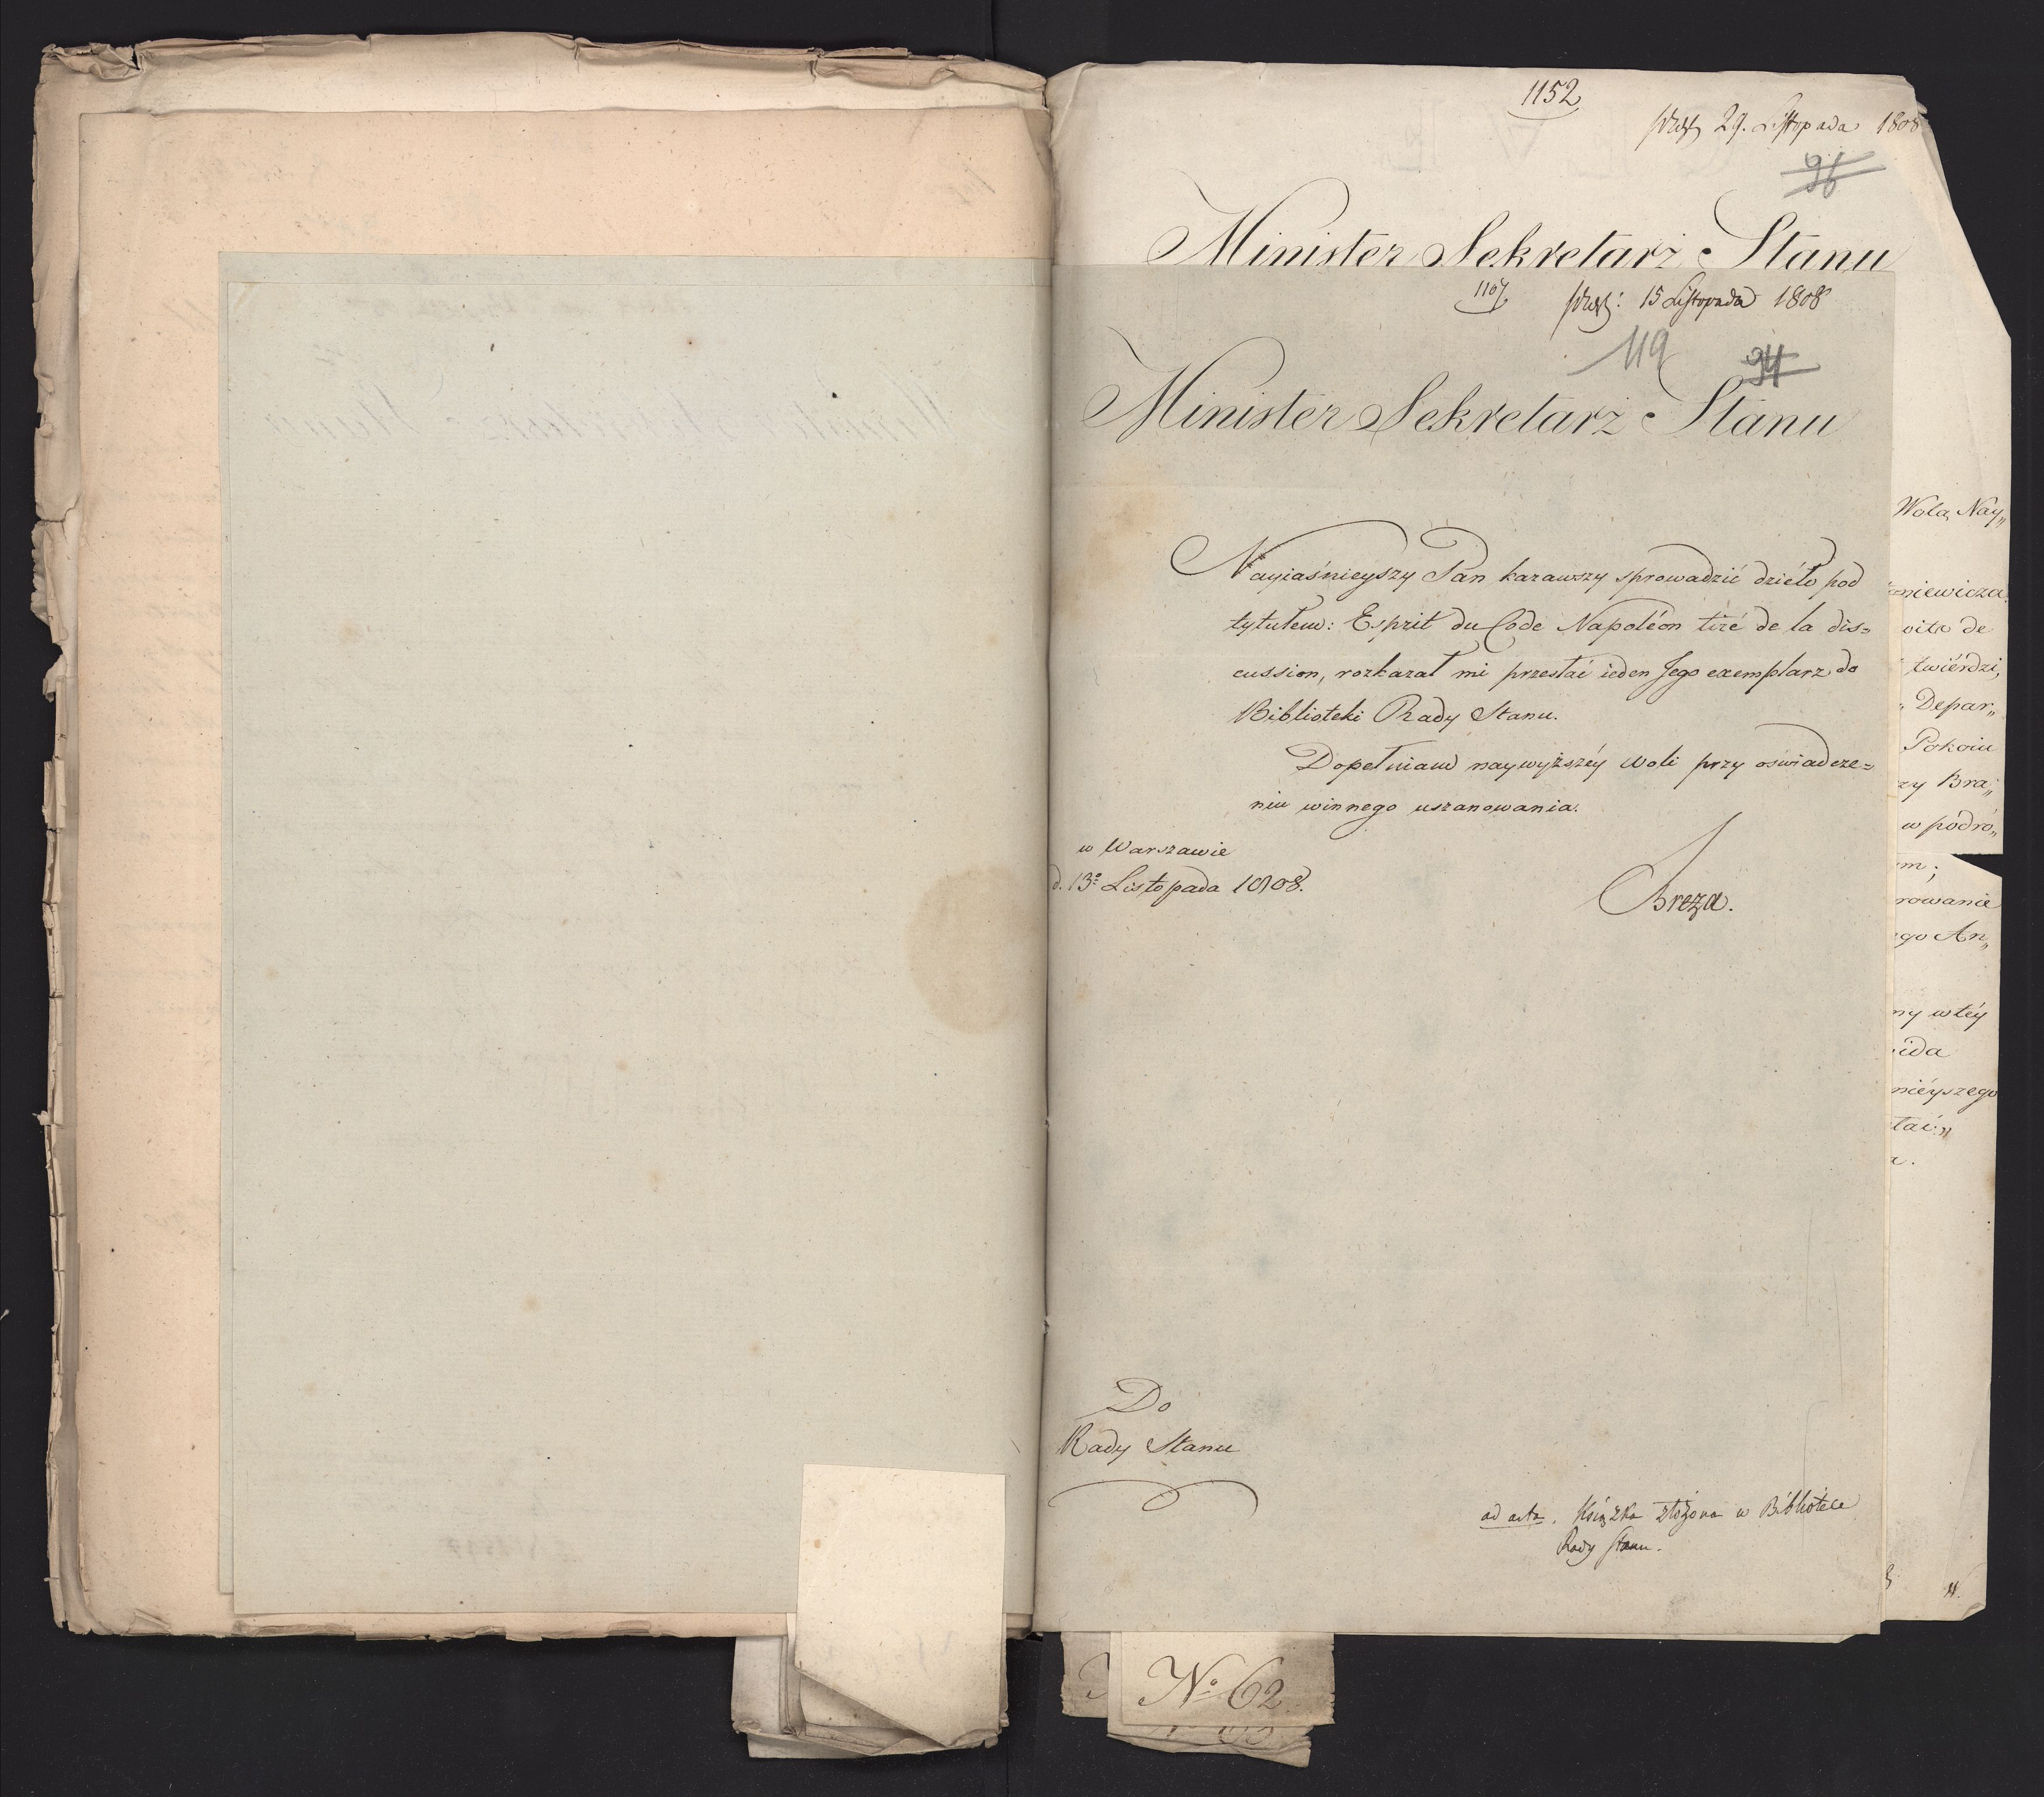 1152
29. Listopada 1808
96
Minister Sekretarz Stanu
1107
15 Listopada 1808
119
94
Minister Sekretarz Stanu
Nayiaśnieyszy Pan kazawszy sprowadzić dzieło pod
tytułem: Esprit du Code Napoléon tiré de la dis=
cussion, rozkazał mi przesłać ieden Jego exemplarz do
Biblioteki Rady Stanu.
Dopełniam naywyższéy woli przy oświadcze=
niu winnego uszanowania.
w Warszawie
d. 13º Listopada 1808.
Breza.
Do
Rady Stanu
ad acta. Książka złożona w Bibliotece
Rady Stanu.
Wolą Nay„
niewicza
vita de
twiérdzi,
Depar„
Pokoiu
zy Bra„
w podró„
m;
rowanie
go An„
ny w téy
ida
niéyszego
tai„
a.
Nº 62